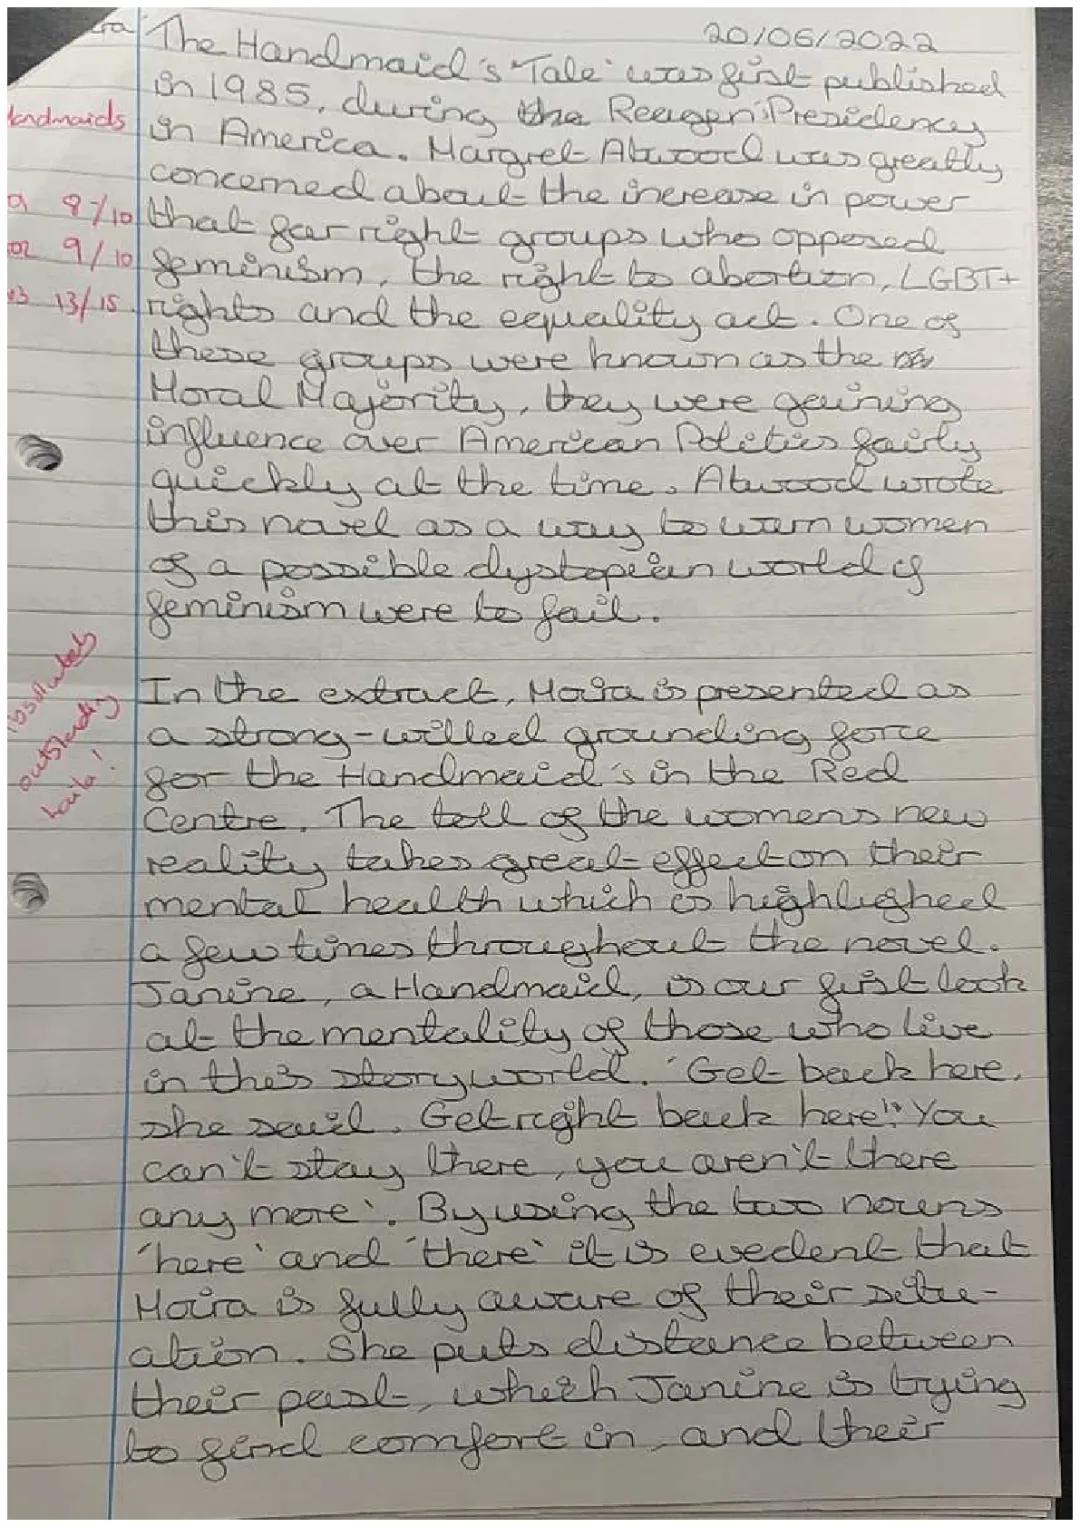 20/06/2022
The Handmaid's Tale' was first published
in 1985, during the Reagen Presidency
in America. Margret Atwood was greatly
concerned about the increase in power
that far right groups who opposed
feminism, the right to abortion, LGBT+
rights and the equality act. One of
these groups were known as the
Moral Majority, they were gaining
influence over American Politics fairly
quickly at the time. Atwood wrote
this novel as a way to warn women
of a possible dystopian world if
feminism were to fail.
In the extract, Moira is presented as
a strong-willed grounding force
for the Handmaid's in the Red
Centre. The toll of the womens new
reality takes great effect on their
mental health which is highligheed
a few times throughout the novel.
Janine, a Handmaid, is our first look
at the mentality of those who live
in this storyworld. 'Get back here,
she said. Get right back here!' You
can't stay there, you aren't there
any more'. By using the two nouns
'here' and 'there' it is evedent that
Moira is fully aware of their situ-
ation. She puts distance between
their past, which Janine is trying
to find comfort in, and their
8/10
9/10
13/15
outstanding